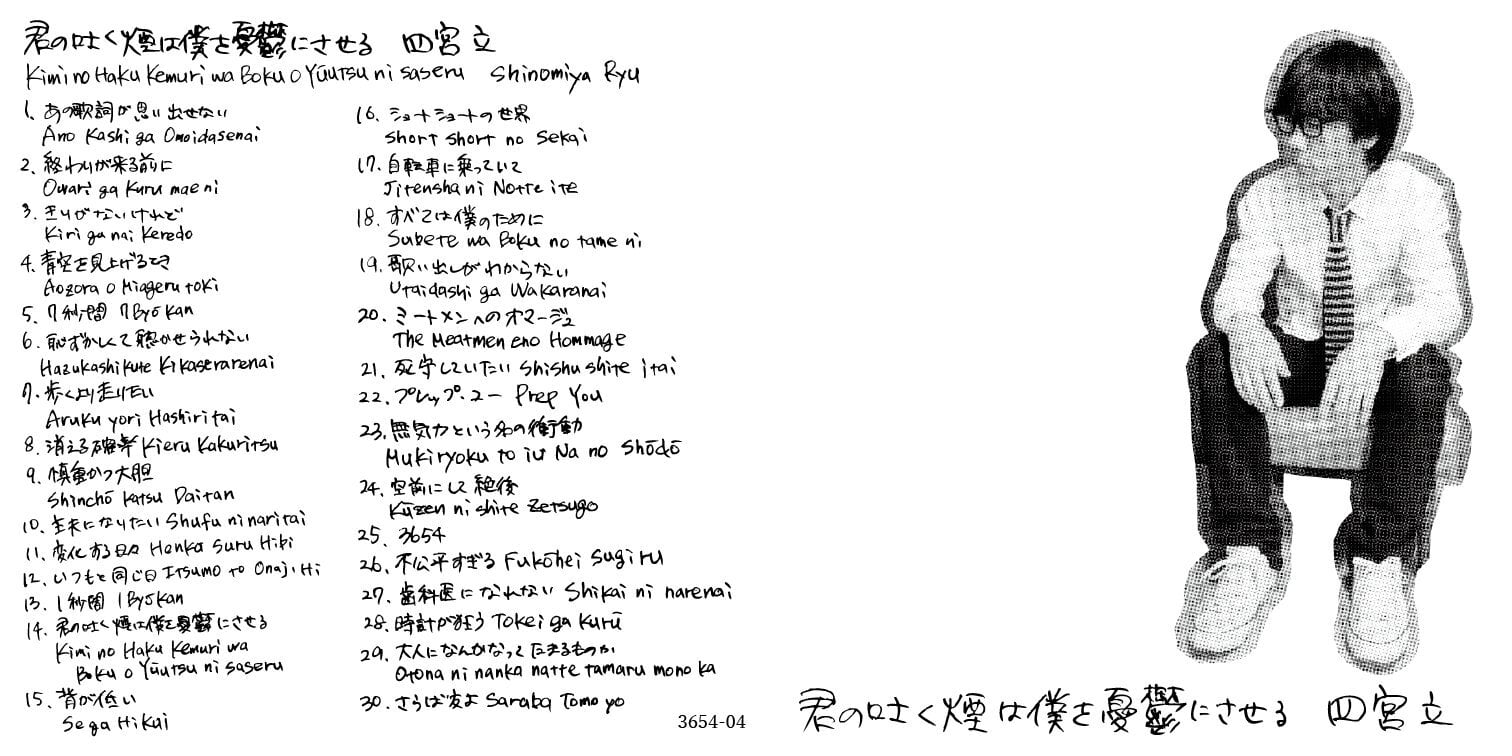 君の吐く煙は僕を憂鬱にさせる 四宮立
Kimi no Haku Kemuri wa Boku o Yūutsu ni saseru Shinomiya Ryu
1. あの歌詞が思い出せない
Ano Kashi ga Omoidasenai
2. 終わりが来る前に
Owari ga Kuru mae ni
3. きりがないけれど
Kiri ga nai Keredo
4. 青空を見上げるとき
Aozora o Miageru toki
5. 7秒間 7Byōkan
6. 恥ずかしくて聴かせられない
Hazukashikute Kikaserarenai
7. 歩くより走りたい
Aruku yori Hashiritai
8. 消える確率 Kieru Kakuritsu
9. 慎重かつ大胆
Shinchō Katsu Daitan
10. 主夫になりたい Shufu ni naritai
11. 変化する日々 Henka Suru Hibi
12. いつもと同じ日 Itsumo to Onaji Hi
13. 1秒間 1Byōkan
14. 君の吐く煙は僕を憂鬱にさせる
Kimi no Haku Kemuri wa
Boku o Yūutsu ni saseru
15. 背が低い
Se ga Hikui
16. ショートショートの世界
Short short no Sekai
17. 自転車に乗っていて
Jitensha ni Notte ite
18. すべては僕のために
Subete wa Boku no tame ni
19. 歌い出しがわからない
Utaidashi ga Wakaranai
20. ミートメンへのオマージュ
The Meatmen eno Hommage
21. 死守していたい Shishu shite itai
22. プレップ・ユー Prep You
23. 無気力という名の衝動
Mukiryoku to iu Na no Shōdō
24. 空前にして絶後
Kūzen ni shite Zetsugo
25. 3654
26. 不公平すぎる Fukōhei sugiru
27. 歯科医になれない Shikai ni narenai
28. 時計が狂う Tokei ga Kurū
29. 大人になんかなってたまるものか
Otona ni nanka natte tamaru mono ka
30. さらば友よ Saraba Tomo yo
3654-04
君の吐く煙は僕を憂鬱にさせる 四宮立